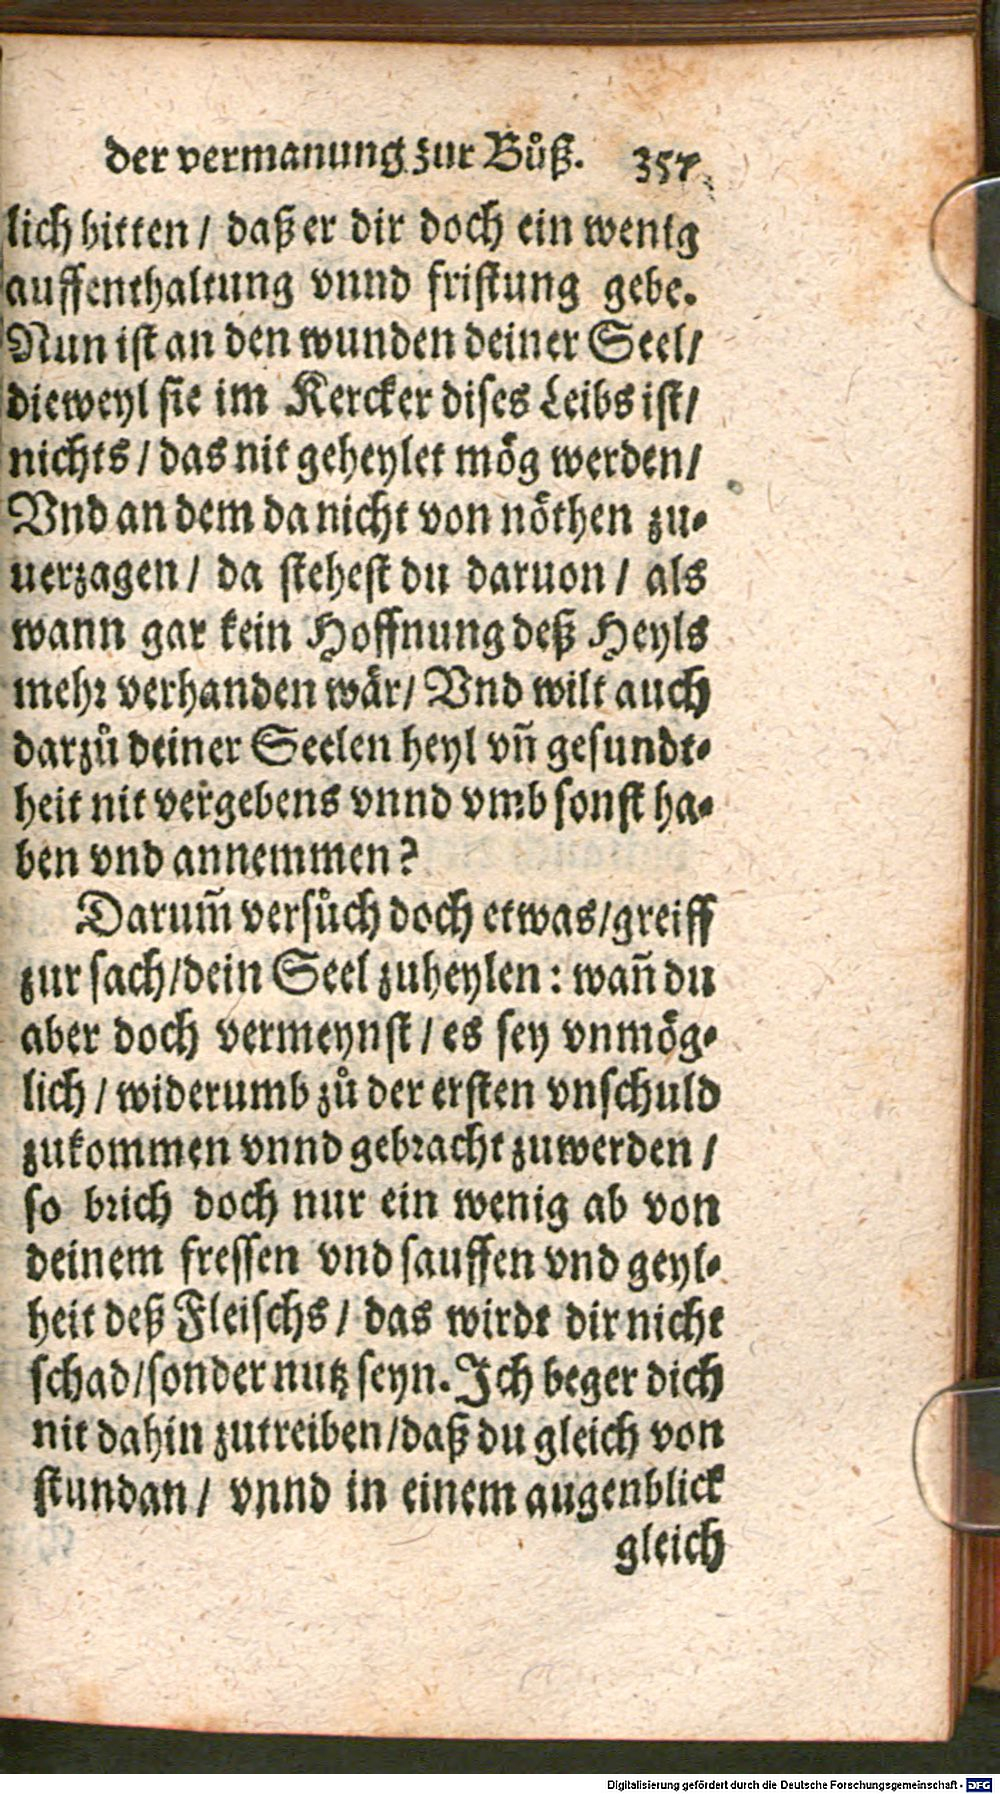 der vermanung zur Bůß. 357
lich bitten / daß er dir doch ein wenig
auffenthaltung vnnd fristung gebe.
Nun ist an den wunden deiner Seel /
dieweyl sie im Kercker dises Leibs ist /
nichts / das nit geheylet mög werden /
Vnd an dem da nicht von nöthen zu⸗
uerzagen / da stehest du daruon / als
wann gar kein Hoffnung deß Heyls
mehr verhanden wär / Vnd wilt auch
darzů deiner Seelen heyl vñ gesundt⸗
heit nit vergebens vnnd vmb sonst ha⸗
ben vnd annemmen?
Darum̃ versůch doch etwas / greiff
zur sach / dein Seel zuheylen : wañ du
aber doch vermeynst / es sey vnmög⸗
lich / widerumb zů der ersten vnschuld
zukommen vnnd gebracht zuwerden /
so brich doch nur ein wenig ab von
deinem fressen vnd sauffen vnd geyl⸗
heit deß Fleischs / das wirdt dir nicht
schad / sonder nutz seyn. Ich beger dich
nit dahin zutreiben / daß du gleich von
stundan / vnnd in einem augenblick
gleich
Digitalisierung gefördert durch die Deutsche Forschungsgemeinschaft - DFG